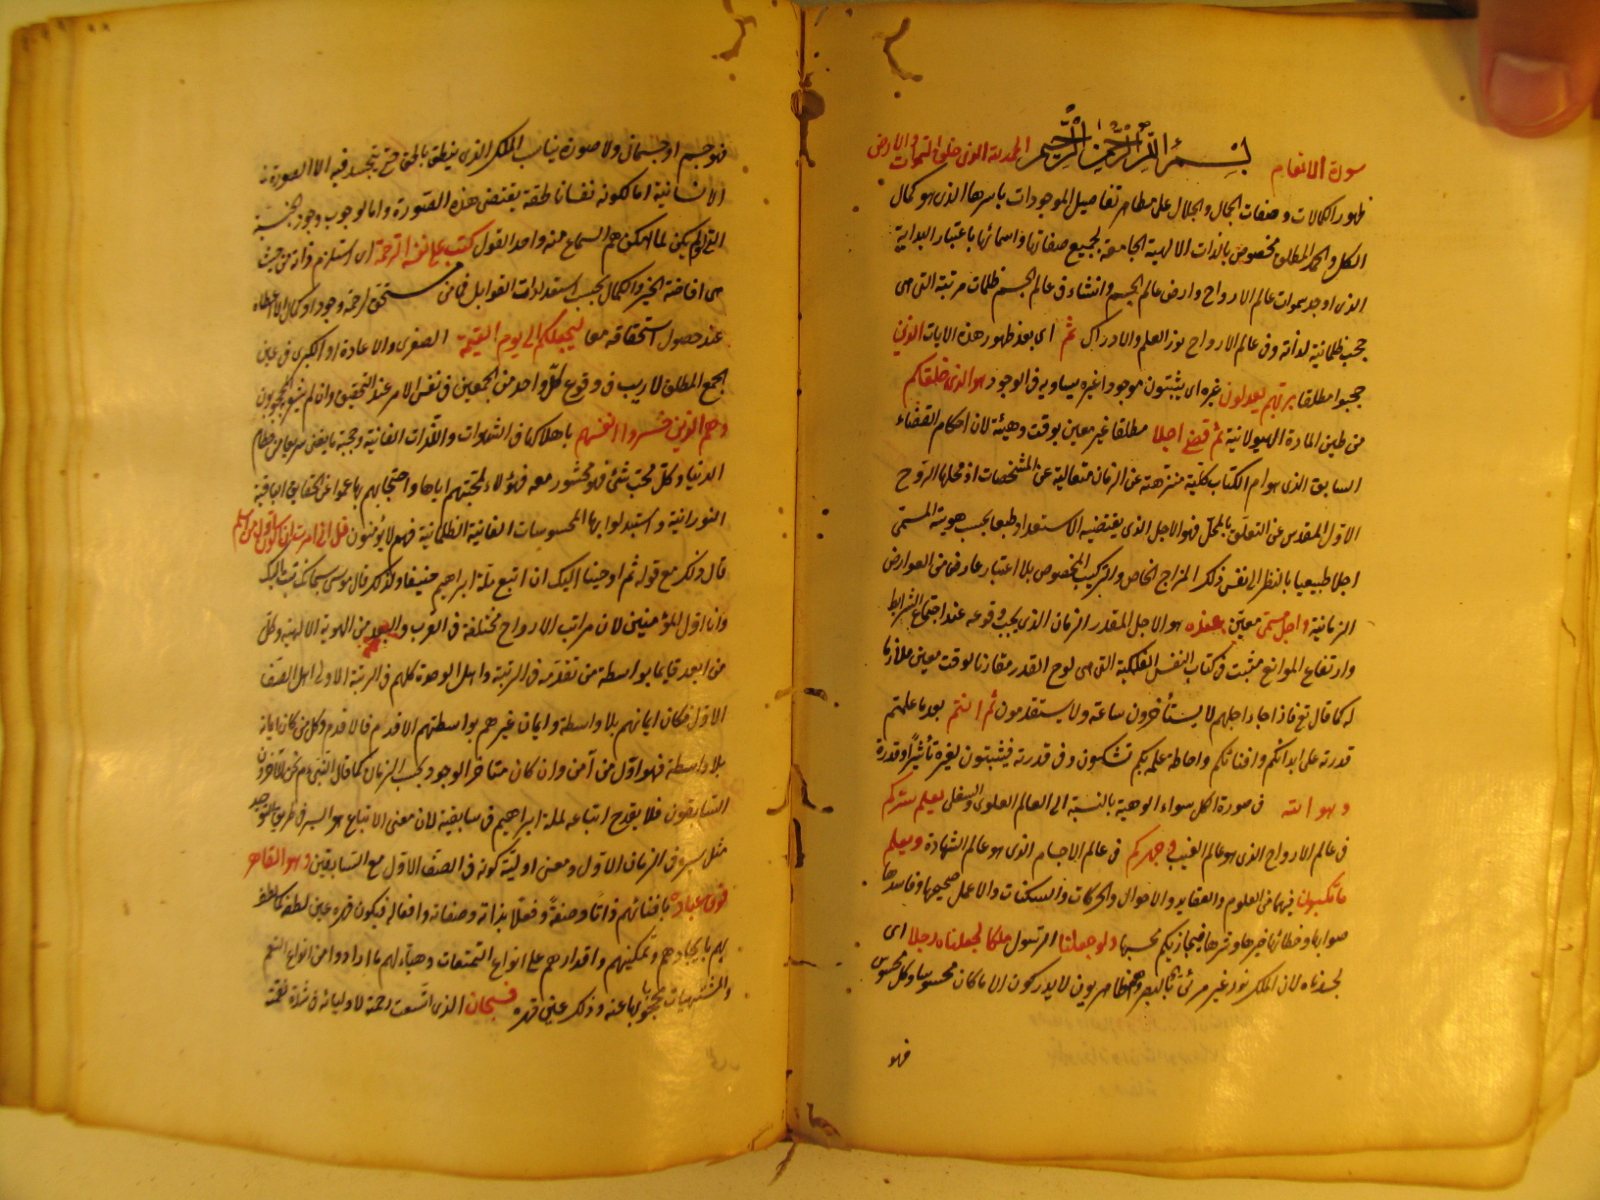 سورة الانعام بسم الله الرحمن الرحيم الحمد لله الذي خلق السموات والارض
ظهور الكمالات وصفات الجمال والجلال على مظاهر تفاصيل الموجودات باسرها الذي هو كمال
الكل والحمد المطلق مخصوص بالذات الالهية الجامعة لجميع صفاتها واسمائها باعتبار البداية
الذي اوجد سموات عالم الارواح وارض عالم الجسم وانشاء في عالم الجسم ظلمات مرتبة التي هي
حجب ظلمانية لذاته وفي عالم الارواح نور العلم والادراك ثم اى بعد ظهور هذه الايات الذين
حجبوا مطلقا بربهم يعدلون غيره اى يثبتون موجودا غيره يساويه في الوجود هو الذي خلقكم
من طين المادة الهيولانية ثم قضى اجلا مطلقا غير معين بوقت وهيئة لان احكام القضاء
السابق الذي هو ام الكتاب كلية منزهة عن الزمان متعالية عن المشخصات اذ محلها الروح
الاول المقدس عن التعلق بالمحل فهو الاجل الذي يقتضيه الاستعداد طبعا بحسب هويته المسمى
اجلا طبيعيا بالنظر الى نفس ذلك المزاج الخاص والتركيب المخصوص بلا اعتبار عارض من العوارض
الزمانية واجل مسمى معين عنده هو الاجل المقدر الزمان الذي يجب وقوعه عند اجتماع الشرايط
وارتفاع الموانع مثبت في كتاب النفس الفلكية التي هي لوح القدر مقارنا لوقت معين ملازما
له كما قال تع فاذا جاء اجلهم لا يستأخرون ساعة ولا يستقدمون ثم انتم بعد ما علمتم
قدرته على ابدائكم وافنائكم واحاطة علمه بكم تشكون وفي قدرته فيثبتون لغيره تأثيرا وقدرة
وهو الله في صورة الكل سواء الوهيته بالنسبة الى العالم العلوى والسفلى يعلم سركم
في عالم الارواح الذي هو عالم الغيب وجهركم في عالم الاجسام الذي هو عالم الشهادة ويعلم
ما تكسبون فيهما من العلوم والعقايد والاحوال والحركات والسكنات والاعمال صحيحها وفاسدها
صوابها وخطائها خيرها وشرها فيجازيكم بحسبها ولو جعلنا الرسول ملكا لجعلناه رجلا اى
لجسدناه لان الملك نور غير مرئى بالبصر وهم ظاهريون لا يدركون الا ما كان محسوسا وكل محسوس
فهو
فهو جسم او جسمانى ولا صورة تناسب الملك الذي ينطق بالحق حتى يتجسد فيه الا الصورة
الانسانية اما لكونه نفسا ناطقة يقتضى هذه الصورة واما لوجوب وجود الجنسية
التي لو لم يكن لما امكن لهم السماع منه واخذ القول كتب على نفسه الرحمة اى استلزم ذاته من حيث
هي افاضة الخير والكمال بحسب استعدادات القوابل فما من مستحق لرحمة وجود او كمال الا اعطاه
عند حصول استحقاقه معا ليجمعنكم الى يوم القيمة الصغرى والاعادة او الكبرى في عين
الجمع المطلق لا ريب في وقوع كل واحد من الجمعين في نفس الامر عند التحقيق وان لم يشعر المحجوبون
وهم الذين خسروا انفسهم باهلاكها في الشهوات واللذات الفانية ومحبة ما يفنى سريعا من حطام
الدنيا وكل محب شئ فهو محشور معه فهؤلاء لمحبتهم اياها واحتجابهم بها عموا عن الحقايق الباقية
النورانية واستبدلوا بها المحسوسات الفانية الظلمانية فهم لا يؤمنون قل انى امرت ان اكون اول من اسلم
قال ذلك مع قوله ثم اوحينا اليك ان اتبع ملة ابراهيم حنيفا ولذلك قال موسى سبحانك تبت اليك
وانا اول المؤمنين لان مراتب الارواح مختلفة في القرب والبعد من الهوية الالهية وكل
من ابعد فايمانه بواسطة من تقدمه في الرتبة واهل الوحدة كلهم في الرتبة الاولى اهل الصف
الاول فكان ايمانهم بلا واسطة وايمان غيرهم بواسطتهم الاقدم فالاقدم وكل من كان ايمانه
بلا واسطة فهو اول من آمن وان كان متاخر الوجود بحسب الزمان كما قال النبي عم نحن الآخرون
السابقون فلا يقدح اتباعه لملة ابراهيم في سابقيته لان معنى الاتباع هو السير في طريق التوحيد
مثل سيره في الزمان الاول ومعنى اوليته كونه في الصف الاول مع السابقين وهو القاهر
فوق عباده بافنائهم ذاتا وصفة وفعلا بذاته وصفاته وافعاله فيكون قهره عين لطفه كما لطف
بهم بايجادهم وتمكينهم واقدارهم على انواع التمتعات وهيأ لهم ما ارادوا من انواع النعم
والمشتهيات فحجبوا بها عنه وذلك عين قهره فسبحان الذي اتسعت رحمته لاوليائه في شدة نقمته